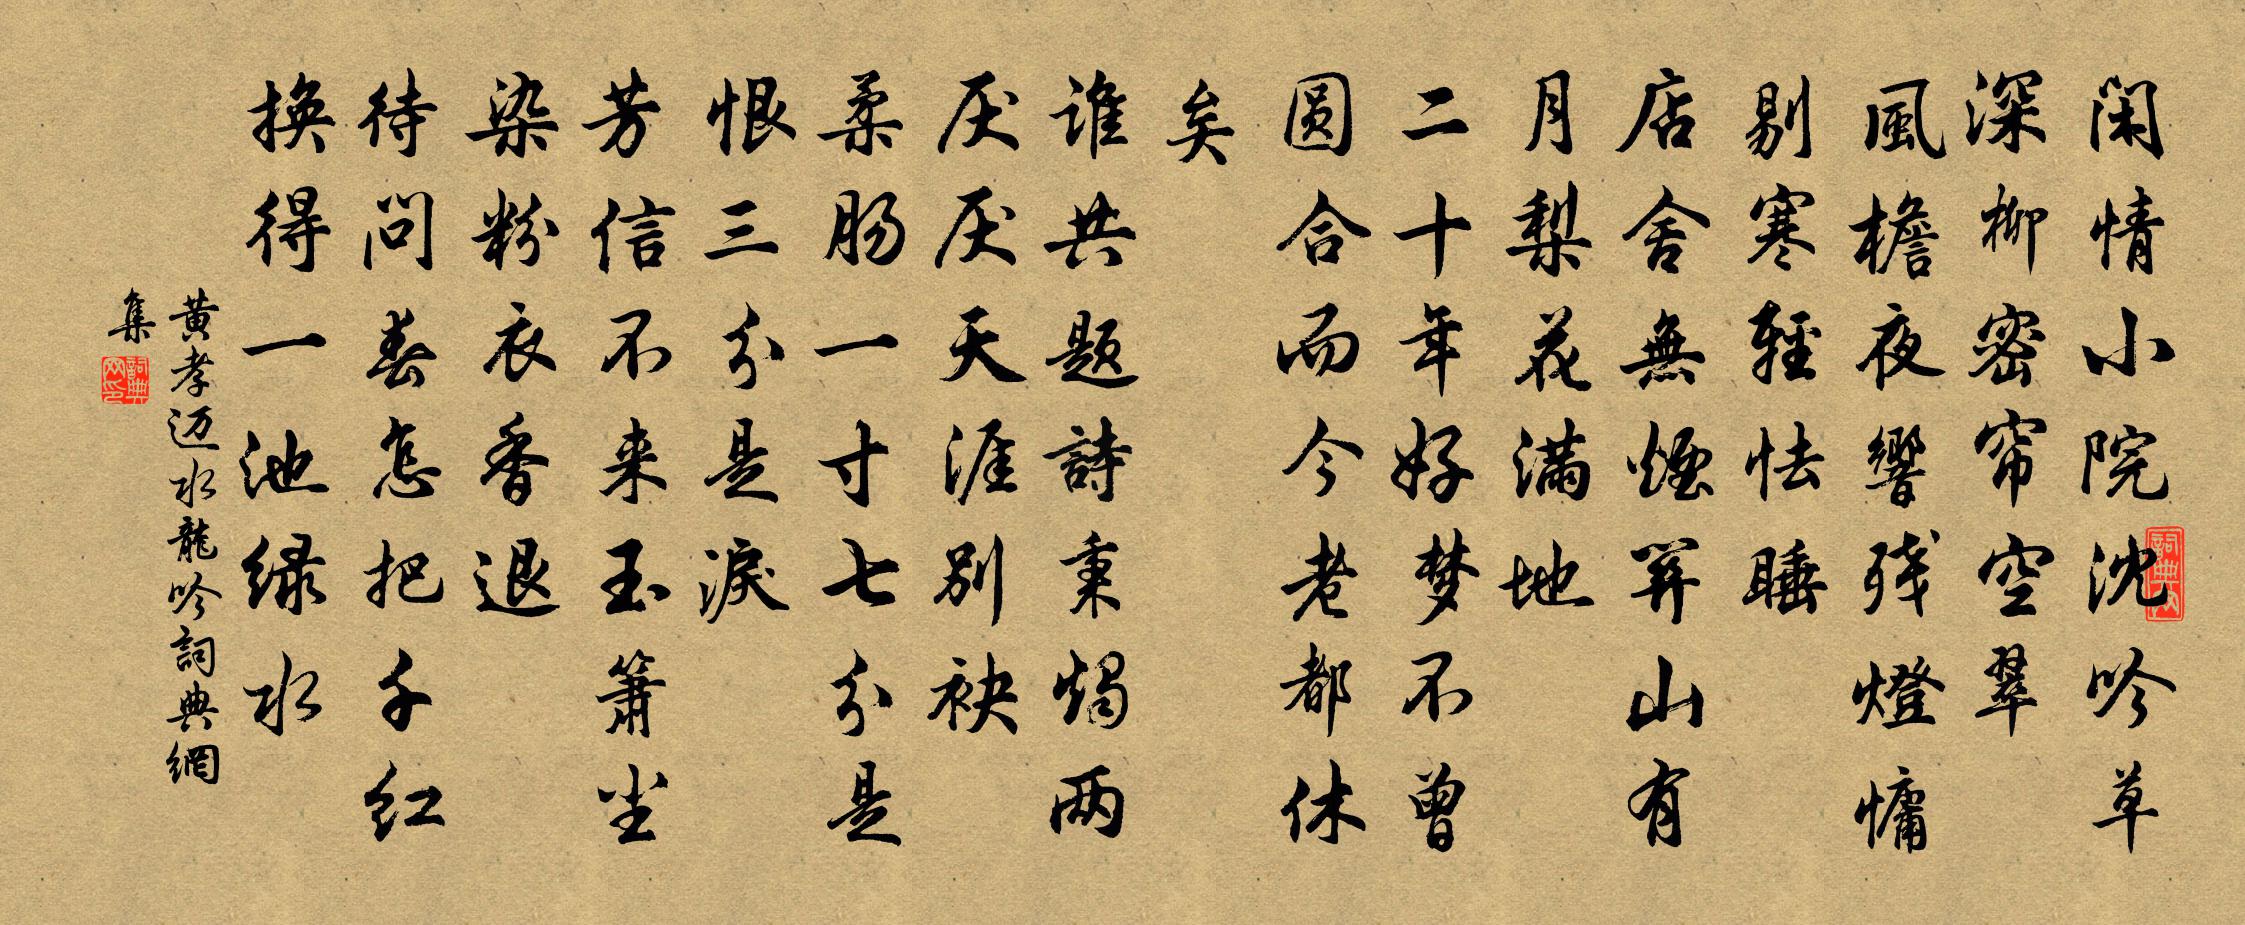 闲情小院沈吟草
深柳密帘空翠
風檐夜響残燈慵
剔寒輕怯睡
店舍無煙關山有
月梨花满地
二十年好梦不曾
圆合而今老都休
矣
谁共题詩秉燭两
厌厌天涯别袂
柔肠一寸七分是
恨三分是淚
芳信不来玉箫尘
染粉衣香退
待问春怎把千红
换得一池绿水
黄孝迈水龍吟詞典網
集
詞典网
詞典网印